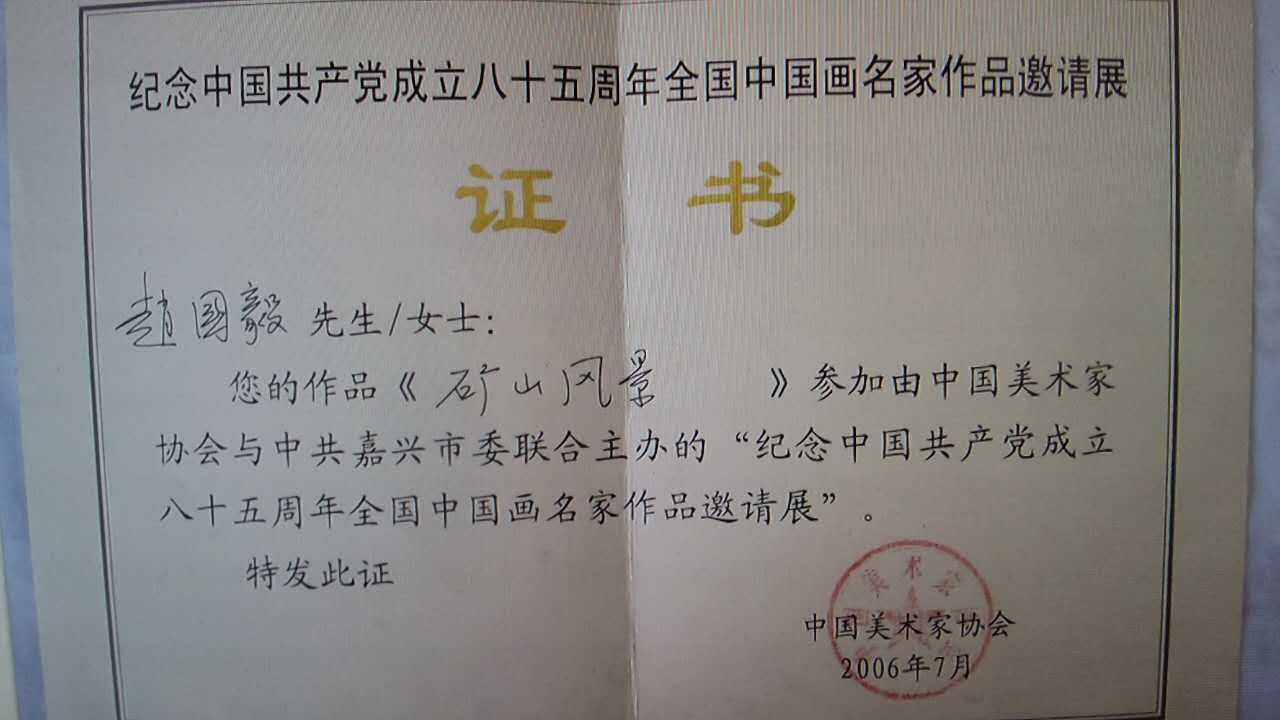 纪念中国共产党成立八十五周年全国中国画名家作品邀请展
证 书
趙國毅 先生/女士:
您的作品《 矿山风景 》参加由中国美术家
协会与中共嘉兴市委联合主办的“纪念中国共产党成立
八十五周年全国中国画名家作品邀请展”。
特发此证
中国美术家协会
2006年7月